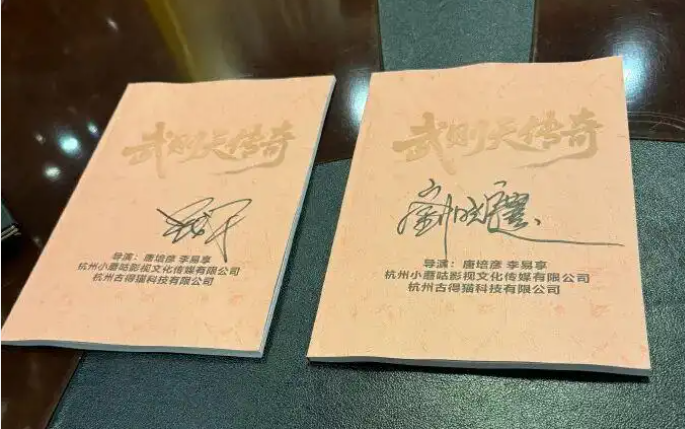 武则天传奇
导演：唐培彦 李易享
杭州小蘑咕影视文化传媒有限公司
杭州古得猫科技有限公司
武则天传奇
刘晓庆
导演：唐培彦 李易享
杭州小蘑咕影视文化传媒有限公司
杭州古得猫科技有限公司